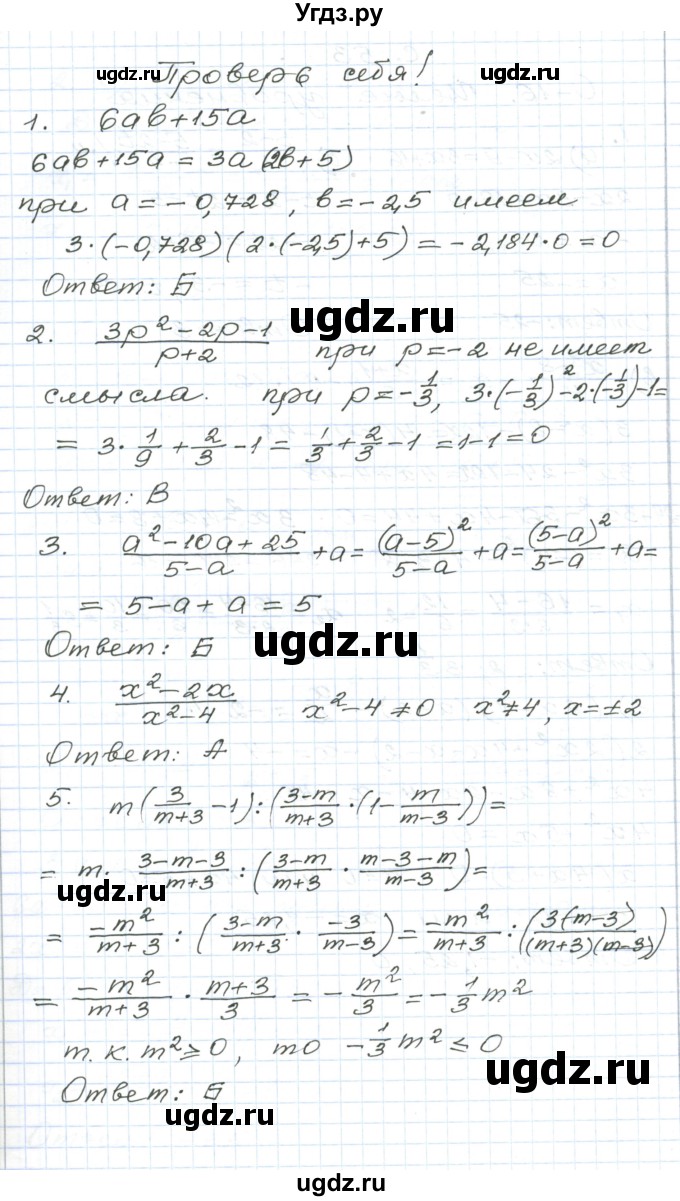 Угдз.ру
Проверь себя!
ugdz.ru ugdz.ru
1. 6ab+15a
6ab+15a = 3a(2b+5)
при a = -0,728, b = -2,5 имеем
3·(-0,728)(2·(-2,5)+5) = -2,184·0 = 0
Ответ: Б
ugdz.ru
2. (3p²-2p-1)/(p+2) при p=-2 не имеет
смысла. при p=-1/3, 3·(-1/3)²-2·(-1/3)-1=
= 3·1/9 + 2/3 - 1 = 1/3 + 2/3 - 1 = 1-1 = 0
Ответ: В
3. (a²-10a+25)/(5-a) + a = (a-5)²/(5-a) + a = (5-a)²/(5-a) + a =
= 5-a+a = 5
Ответ: Б
ugdz.ru
4. (x²-2x)/(x²-4) x²-4≠0 x²≠4, x=±2
Ответ: А
5. m(3/(m+3) -1):((3-m)/(m+3)·(1-m/(m-3)))=
= m·(3-m-3)/(m+3):((3-m)/(m+3)·(m-3-m)/(m-3))=
ugdz.ru
= -m²/(m+3):((3-m)/(m+3)·-3/(m-3))=-m²/(m+3):(3(m-3)/(m+3)(m-3))
= -m²/(m+3)·(m+3)/3 = -m²/3 = -1/3 m²
т.к. m²≥0, то -1/3 m² ≤ 0
ugdz.ru
Ответ: Б
ugdz.ru ugdz.ru
ugdz.ru